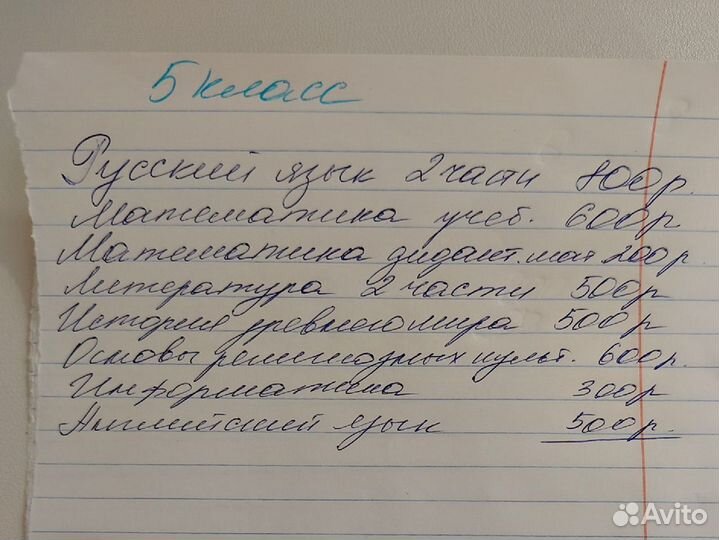 5 класс
Русский язык 2 части 800р.
Математика учеб. 600р
Математика дидакт. мат 200р.
Литература 2 части 500р
История древнего мира 500р
Основы религиозных культ. 600р.
Информатика 300р
Английский язык 500р.
Avito